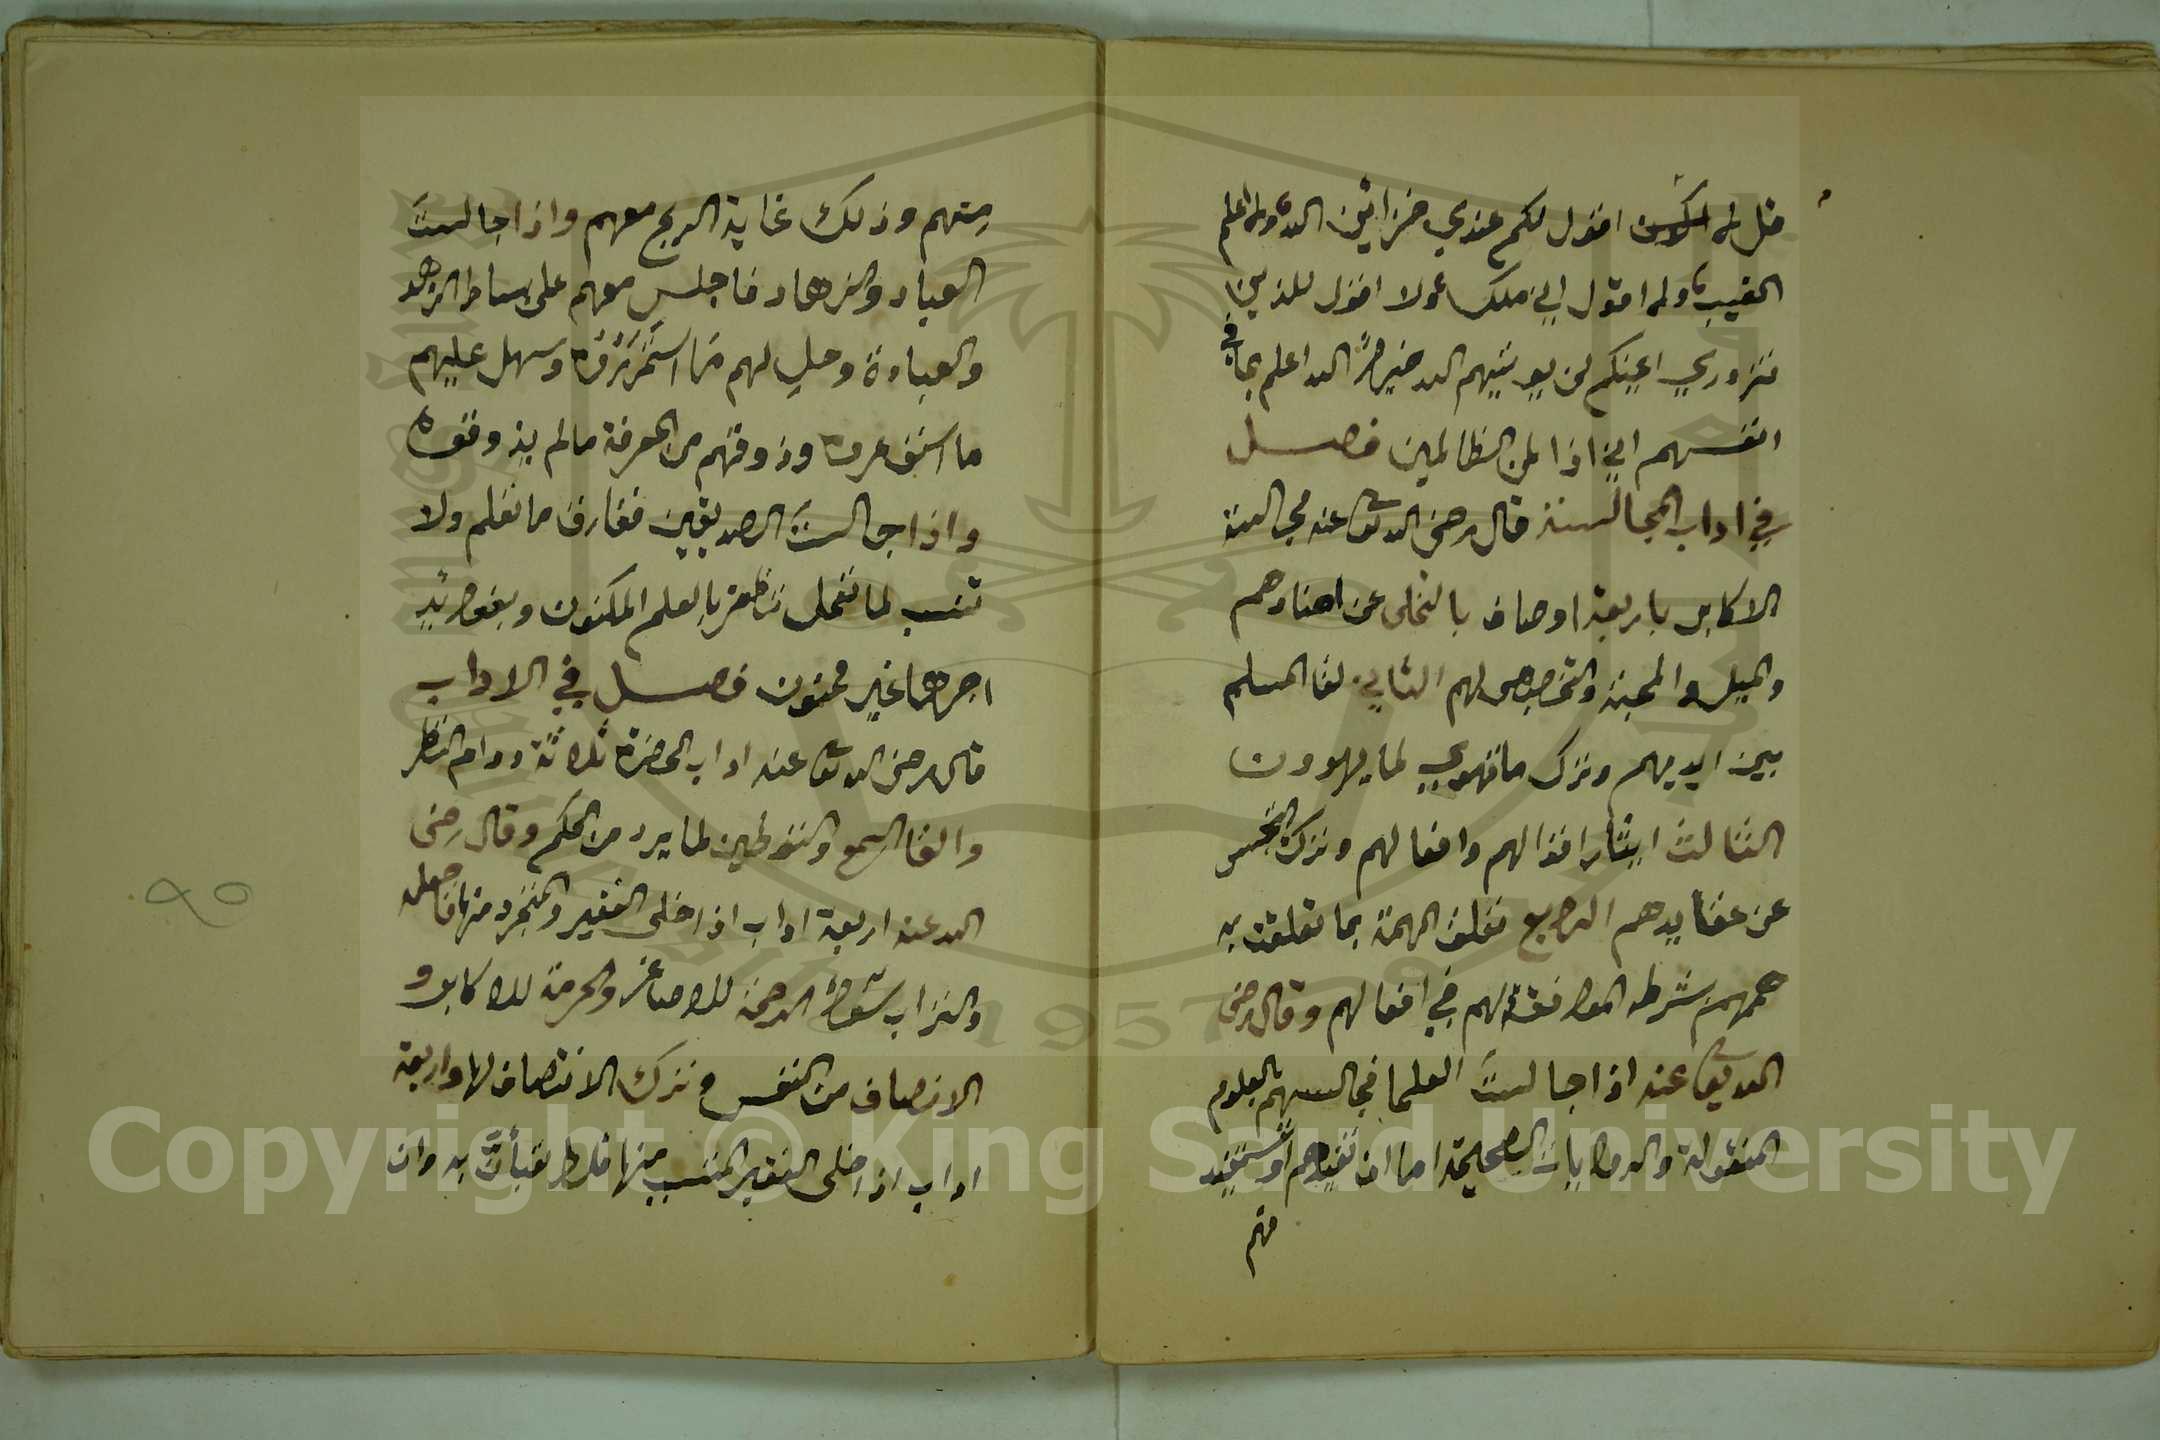 قل لم اقول لكم عندي خزاين الله ولم اعلم
الغيب ولم اقول اني ملك ولا اقول للذين
تزدري اعينكم لن يوتيهم الله خيرا الله اعلم بما في
انفسهم اني اذا لمن الظالمين فصل
في اداب المجالسة قال رضي الله تعا عنه مجالسة
الاكابر باربعة اوصاف بالتخلي عن اضدادهم
والميل والمحبة والتخصيص لهم الثاني لقا المسلم
بين ايديهم وترك ما تهوي لما يهوون
الثالث ايثار اقوالهم وافعالهم وترك التجسس
عن عقايدهم الرابع تعلق الهمة بما تعلقت به
هممهم بشرط الموافقة لهم في افعالهم وقال رضي
الله تعا عنه اذا جالست العلما فجالسهم بالعلوم
المنقولة والروايات الصحيحة اما ان تفيدهم او تستفيد
منهم
منهم وذلك غاية الربح معهم واذا جالست
العباد والزهاد فاجلس معهم على بساط الزهد
والعبادة وحل لهم ما استمرروه وسهل عليهم
ما استوعروه وذوقهم من المعرفة مالم يذوقوه
واذا جالست الصديقين ففارق ما تعلم ولا
تنسب لما تعمل تظفر بالعلم المكنون وبفوايد
اجرها غير ممنون فصل في الاداب
قال رضي الله تعا عنه اداب الحضرة ثلاثة دوام النظر
والقا السمع والتوطين لما يرد من الحكم وقال رضي
الله عنه اربعة اداب اذا خلى الفقير المتجرد منها فاجعله
والتراب سوا الرحمة للاصاغر والحرمة للاكابر و
الانصاف من النفس وترك الانتصاف لها واربعة
اداب اذا خلى الفقير المتسبب منها فلا تعبأن به وان
٩٥
Copyright © King Saud University
1957